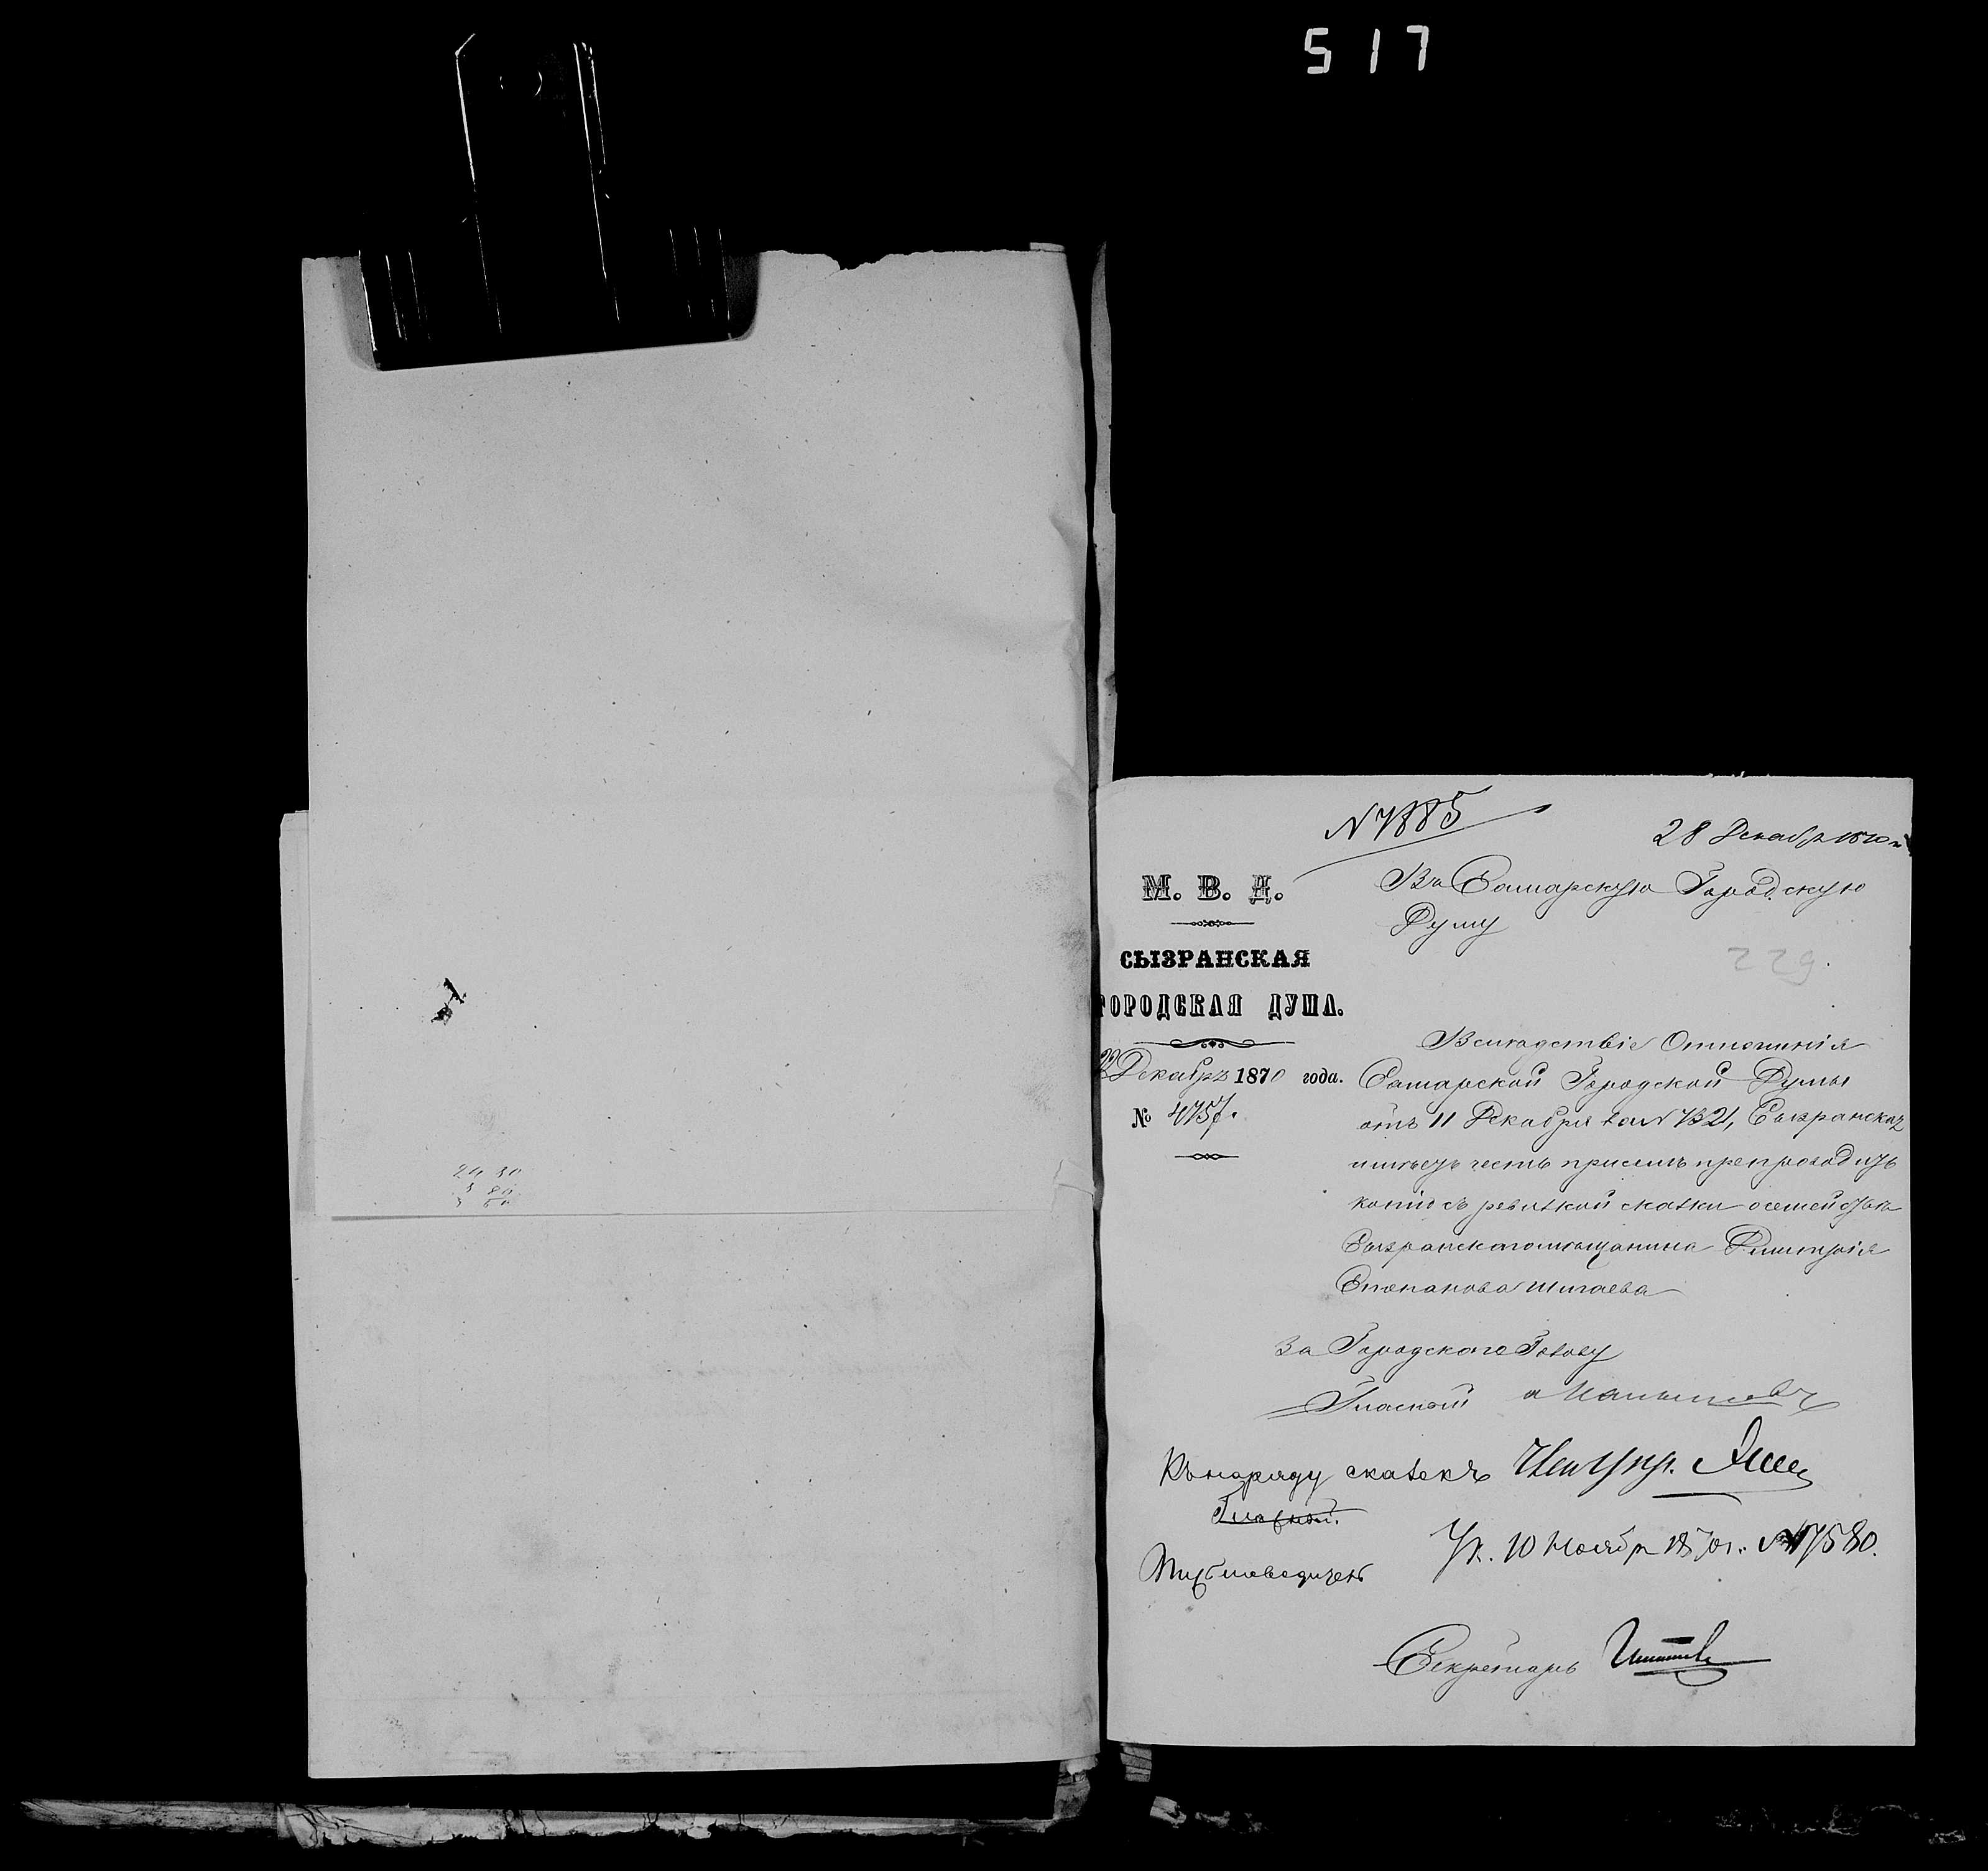 517
N 7885
28 Декабр 1870 г
М. В. Д.
СЫЗРАНСКАЯ
ГОРОДСКАЯ ДУМА.
22 Декабря 1870 года.
№ 4757.
Въ Самарскую Городскую
Думу
229.
Вслѣдствіе Отношенія
Самарской Городской Думы
отъ 11 Декабря за N 7321, Сызранская
имѣетъ честь присемъ препроводить
копію съ ревизкой сказки о семействѣ
Сызранскаго мѣщанина Дмитрія
Степанова Шигаева
За Городскаго Голову
Гласной
Къ наряду сказокъ
Гласной.
Ук. 10 Ноябр 1870 г. N 7580.
Секретарь
24 30